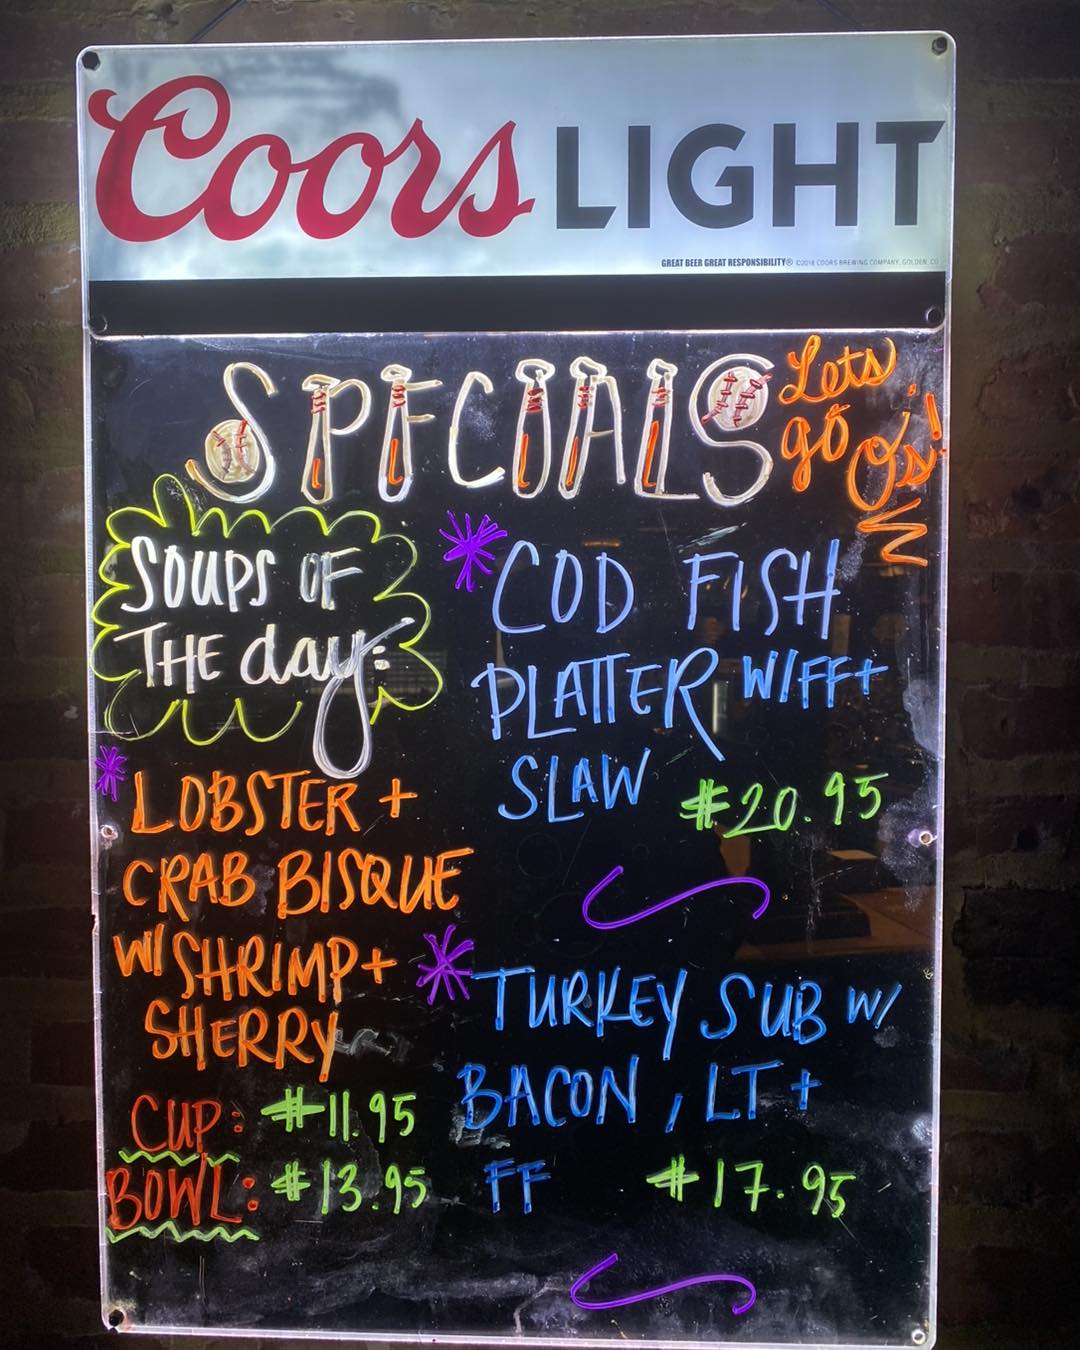 Coors LIGHT
GREAT BEER GREAT RESPONSIBILITY® ©2018 COORS BREWING COMPANY, GOLDEN, CO
SPECIALS
Lets
go
O's!
SOUPS OF
THE day:
* LOBSTER +
CRAB BISQUE
W/ SHRIMP +
SHERRY
CUP: $11.95
BOWL: $13.95
* COD FISH
PLATTER W/FF+
SLAW $20.95
* TURKEY SUB W/
BACON, LT +
FF $17.95